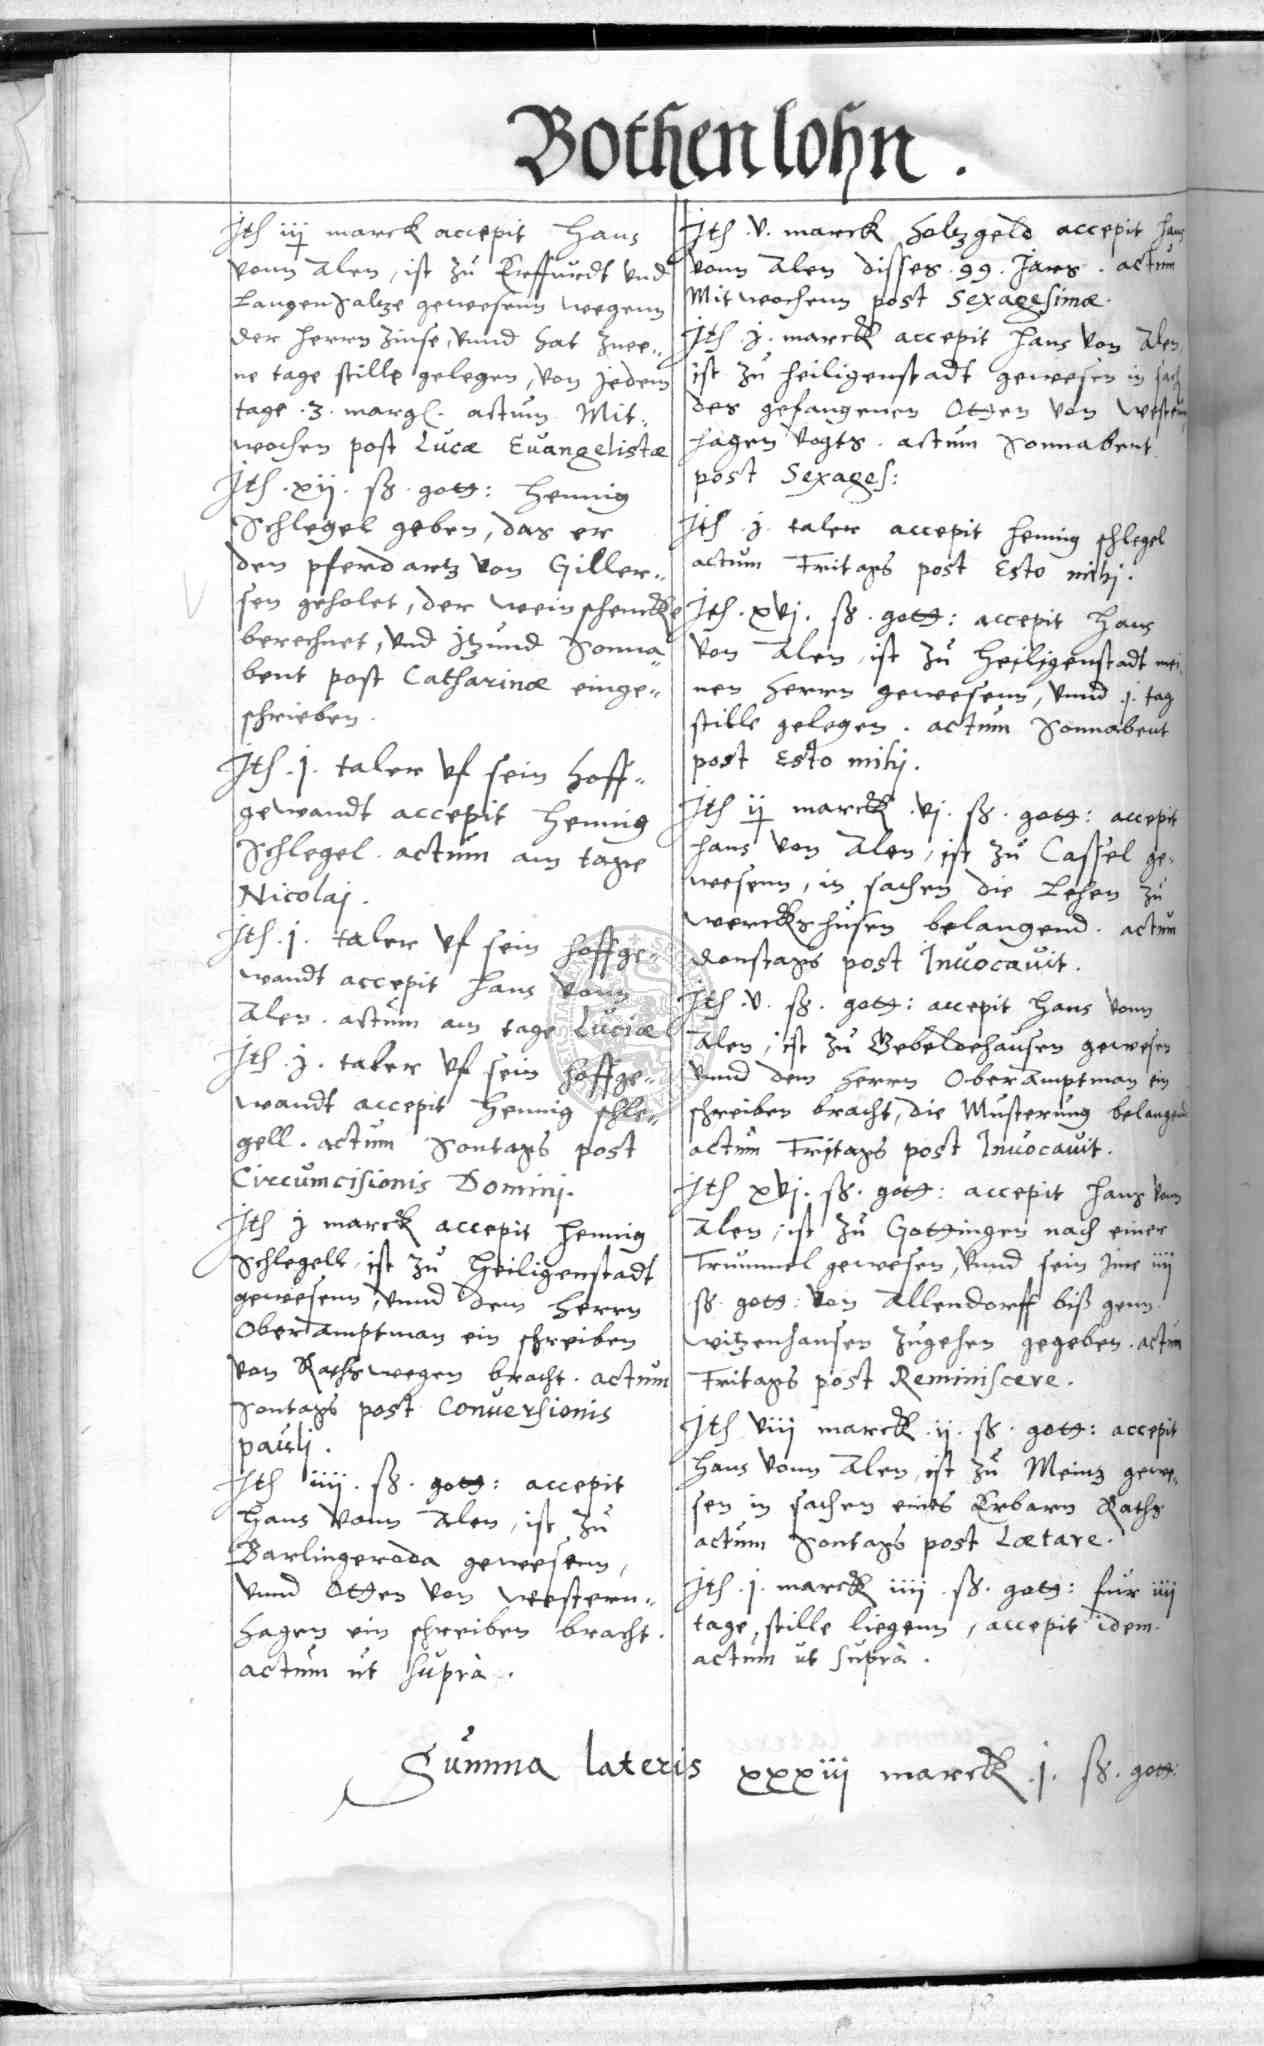 Bothenlohn.
Ith iij marck accepit Hans
vonn Alen, ist zu Erffurdt vnd
Langensaltze gewesenn wegenn
der Herrn Zinse, vnnd hat zwee=
ne tage stille gelegen, von jedem
tage .3. margk. actum Mit=
wochen post Lucæ Euangelistæ
Ith .xij. ß. gott: Hennig
Schlegel geben, das er
den pferdartz von Giller=
sen geholet, der weinschencke
berechnet, vnd jtzund Sonna=
bent post Catharinæ einge=
schrieben.
Ith .j. taler vf sein hoff=
gewandt accepit Hennig
Schlegel. actum am tage
Nicolaj.
Ith .j. taler vf sein hoffge=
wandt accepit Hans vonn
Alen. actum am tage Luciæ
Ith .j. taler vf sein hoffge=
wandt accepit Hennig Schle=
gell. actum Sontags post
Circumcisionis Dominj.
Ith j marck accepit Hennig
Schlegell, ist zu Heiligenstadt
gewesenn, vnnd dem Herrn
Oberamptman ein schreiben
von Raths wegen bracht. actum
Sontags post Conuersionis
paulj.
Ith iiij. ß. gott: accepit
Hans vonn Alen, ist zu
Barlingeroda gewesenn,
vnnd Otten von Western=
hagen ein schreiben bracht.
actum ut supra.
Ith .v. marck Holtzgeld accepit Hans
vonn Alen disses .99. Jars. actum
Mitwochenn post Sexagesimæ.
Ith .j. marck accepit Hans von Alen,
ist zu Heiligenstadt gewesen in sach
des gefangenen Otten von Western
hagen Vogts. actum Sonnabent
post Sexages:
Ith .j. taler accepit Hennig Schlegel
actum Fritags post Esto mihj.
Ith .xvj. ß. gott: accepit Hans
von Alen, ist zu Heiligenstadt mei
nen Herrn gewesenn, vnnd .j. tag
stille gelegen. actum Sonnabent
post Esto mihj.
Ith ij marck .vj. ß. gott: accepit
Hans von Alen, ist zu Cassel ge=
wesenn, in sachen die Lehen zu
Werckshusen belangend. actum
donstags post Inuocauit.
Ith .v. ß. gott: accepit Hans vonn
Alen, ist zu Gebeldehausen gewesen
vnnd dem Herrn Oberamptman ein
schreiben bracht, die Musterung belangend
actum Fritags post Inuocauit.
Ith xvj. ß. gott: accepit Hans von
Alen, ist zu Gottingen nach einer
Trummel gewesen, vnnd sein jme iiij
ß. gott: von Allendorff biß genn
Witzenhausen zugehen gegeben. actum
Fritags post Reminiscere.
Ith viij marck .ij. ß. gott: accepit
Hans vonn Alen, ist zu Meintz gewe=
sen in sachen eines Erbarn Raths
actum Sontags post Lætare.
Ith .j. marck iiij .ß. gott: fur iiij
tage, stille liegenn, accepit idem.
actum ut supra.
Summa lateris xxxiij marck .j. ß. gott: